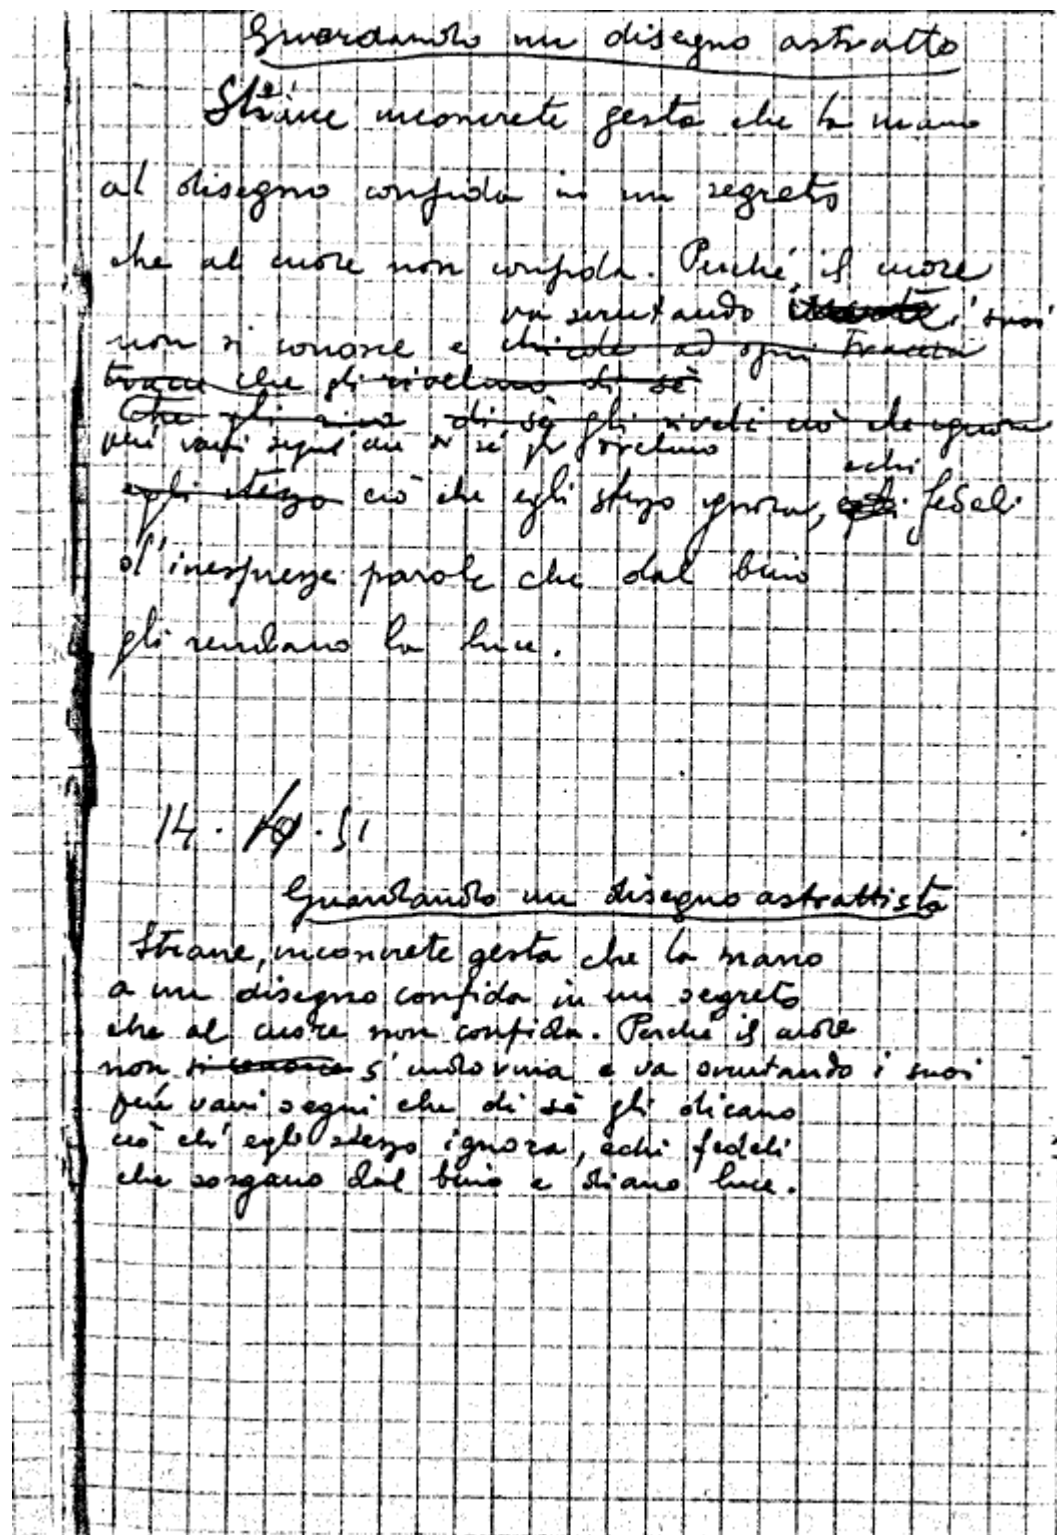 Guardando un disegno astratto
Strane inconcrete gesta che la mano
al disegno confida in un segreto
che al cuore non confida. Perché il cuore
va scrutando i suoi
non si conosce e chiede ad ogni traccia
traccia che gli rivelino di sè
che gli di sè gli riveli ciò che ignora
più vani segni che di sé gli svelino
echi
egli stesso ciò che egli stesso ignora, fedeli
d'inespresse parole che dal buio
gli rendano la luce.
14. .51
Guardando un disegno astrattista
Strane, inconcrete gesta che la mano
a un disegno confida in un segreto
che al cuore non confida. Perché il cuore
non si conosce s'indovina e va scrutando i suoi
più vani segni che di sè gli dicano
ciò ch'egli stesso ignora, echi fedeli
che sorgano dal buio e diano luce.